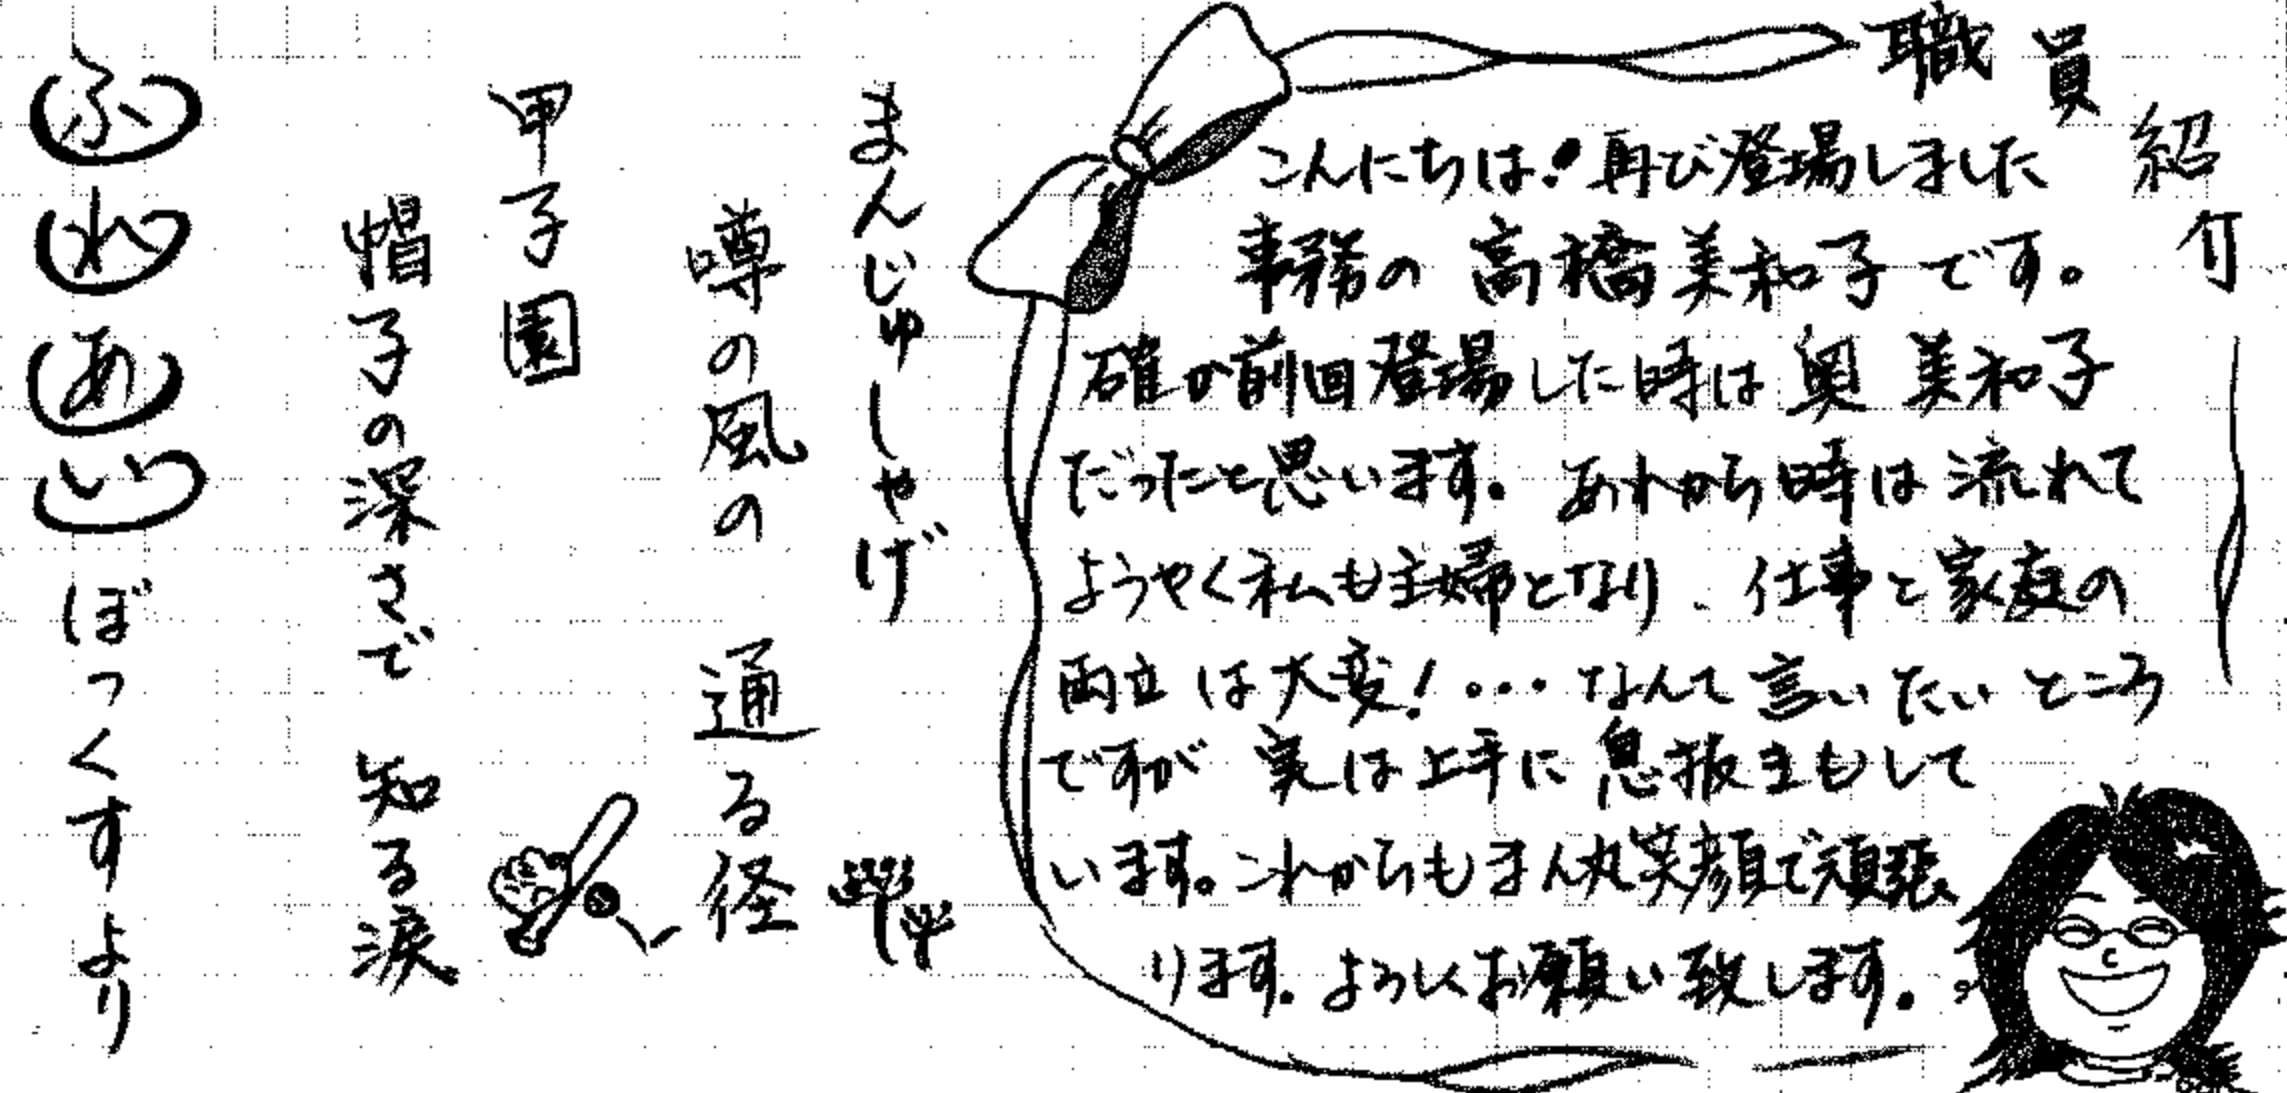 職員紹介
こんにちは!再び登場しました
事務の 高橋美和子です。
確か前回登場した時は 奥 美和子
だったと思います。あれから時は流れて
ようやく私も主婦となり、仕事と家庭の
両立は大変!・・・なんて言いたいところ
ですが 実は上手に息抜きもして
います。これからもまん丸笑顔で頑張
ります。よろしくお願い致します。
まんじゅしゃげ
噂の風の 通る径
甲子園
帽子の深さで 知る涙
ふれあい ぼっくすより